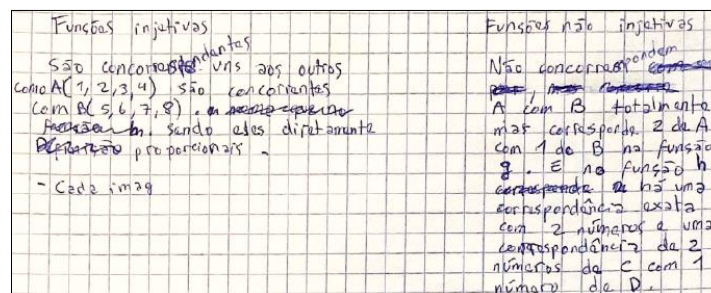 Funções injetivas
São concorrespondantes uns aos outros
como A(1, 2, 3, 4) são concorrentes
com B(5, 6, 7, 8).
sendo eles diretamente
proporcionais.
- Cada imag
Funções não injetivas
Não concorrespondem
A com B totalmente
mas corresponde 2 de A
com 1 do B na função
g. E na função h
há uma
correspondência exata
com 2 números e uma
correspondância de 2
números de C com 1
número de D.